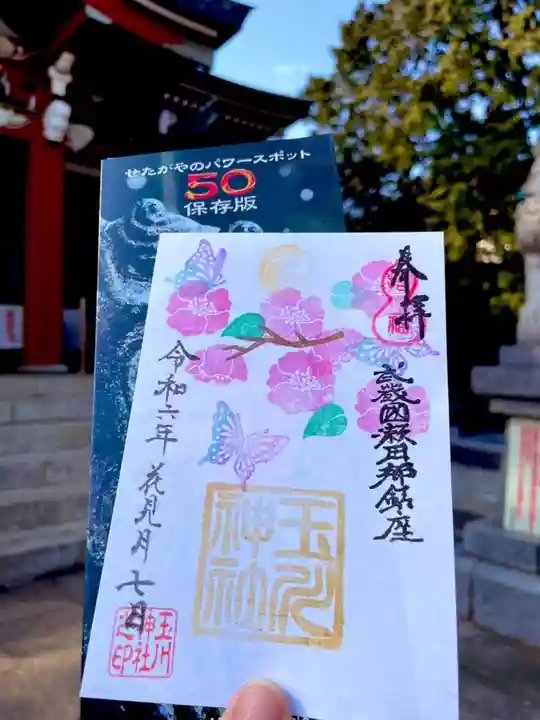 せたがやのパワースポット
50
保存版
奉拝
武蔵国荏原郡鎮座
玉川
神社
令和六年 花見月 七日
玉川
神社
之印